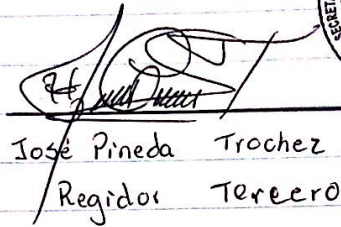 SECRETA
José Pineda Trochez
Regidor Tercero